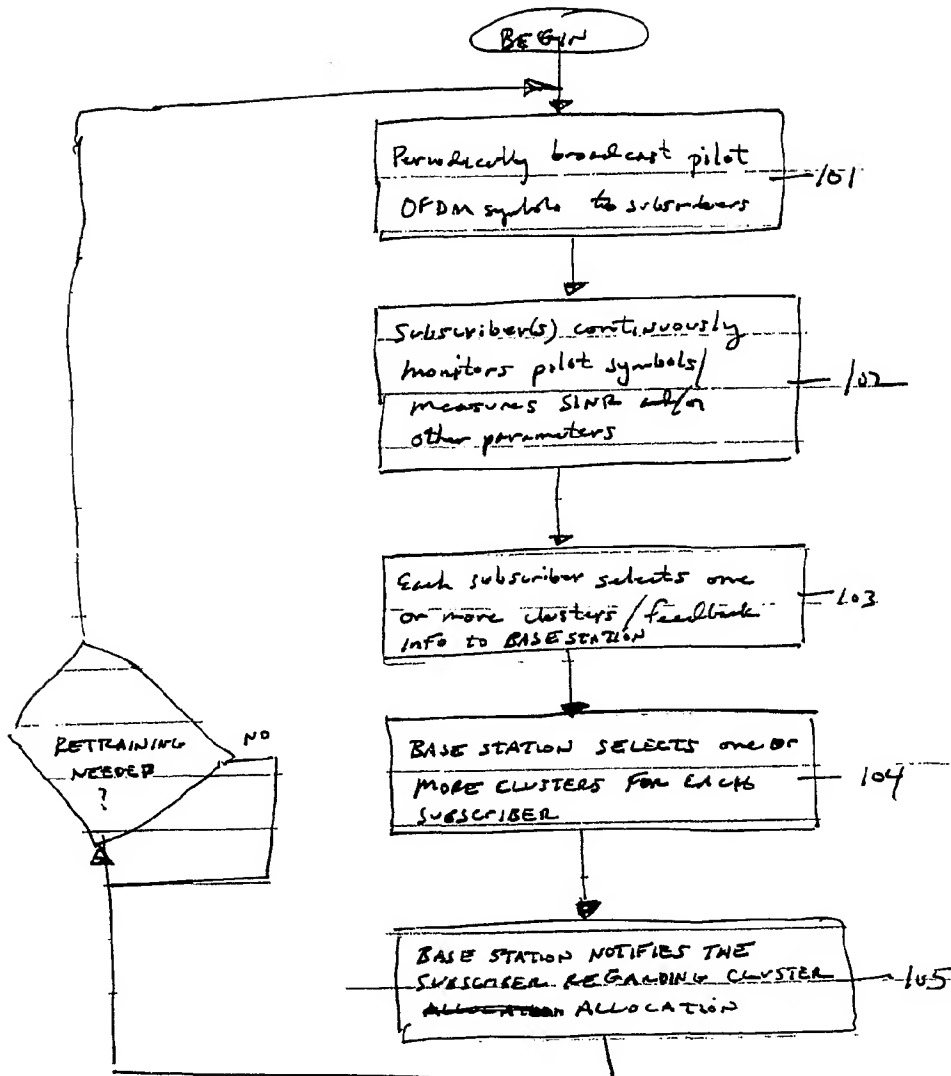 BEGIN
Periodically broadcast pilot
OFDM symbols to subscribers
101
Subscriber(s) continuously
monitors pilot symbols/
measures SINR and/or
other parameters
102
Each subscriber selects one
or more clusters/feedback
info to BASE STATION
103
BASE STATION SELECTS one OR
MORE CLUSTERS FOR EACH
SUBSCRIBER
104
BASE STATION NOTIFIES THE
SUBSCRIBER REGARDING CLUSTER
ALLOCATION
105
RETRAINING
NEEDED
?
NO